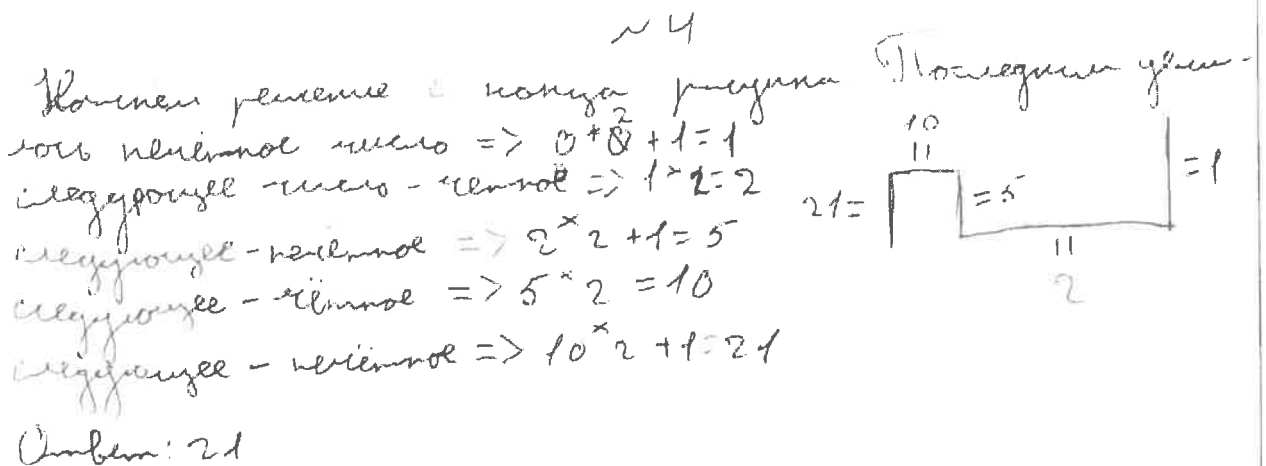 ~ 4
Начнем решение с конца рисунка Последним дели-
лось нечётное число => 0*2+1=1
следующее число - четное => 1*2=2
следующее - нечетное => 2*2+1=5
следующее - чётное => 5*2=10
следующее - нечётное => 10*2+1=21
Ответ: 21
10
11
21=
=5
=1
11
2